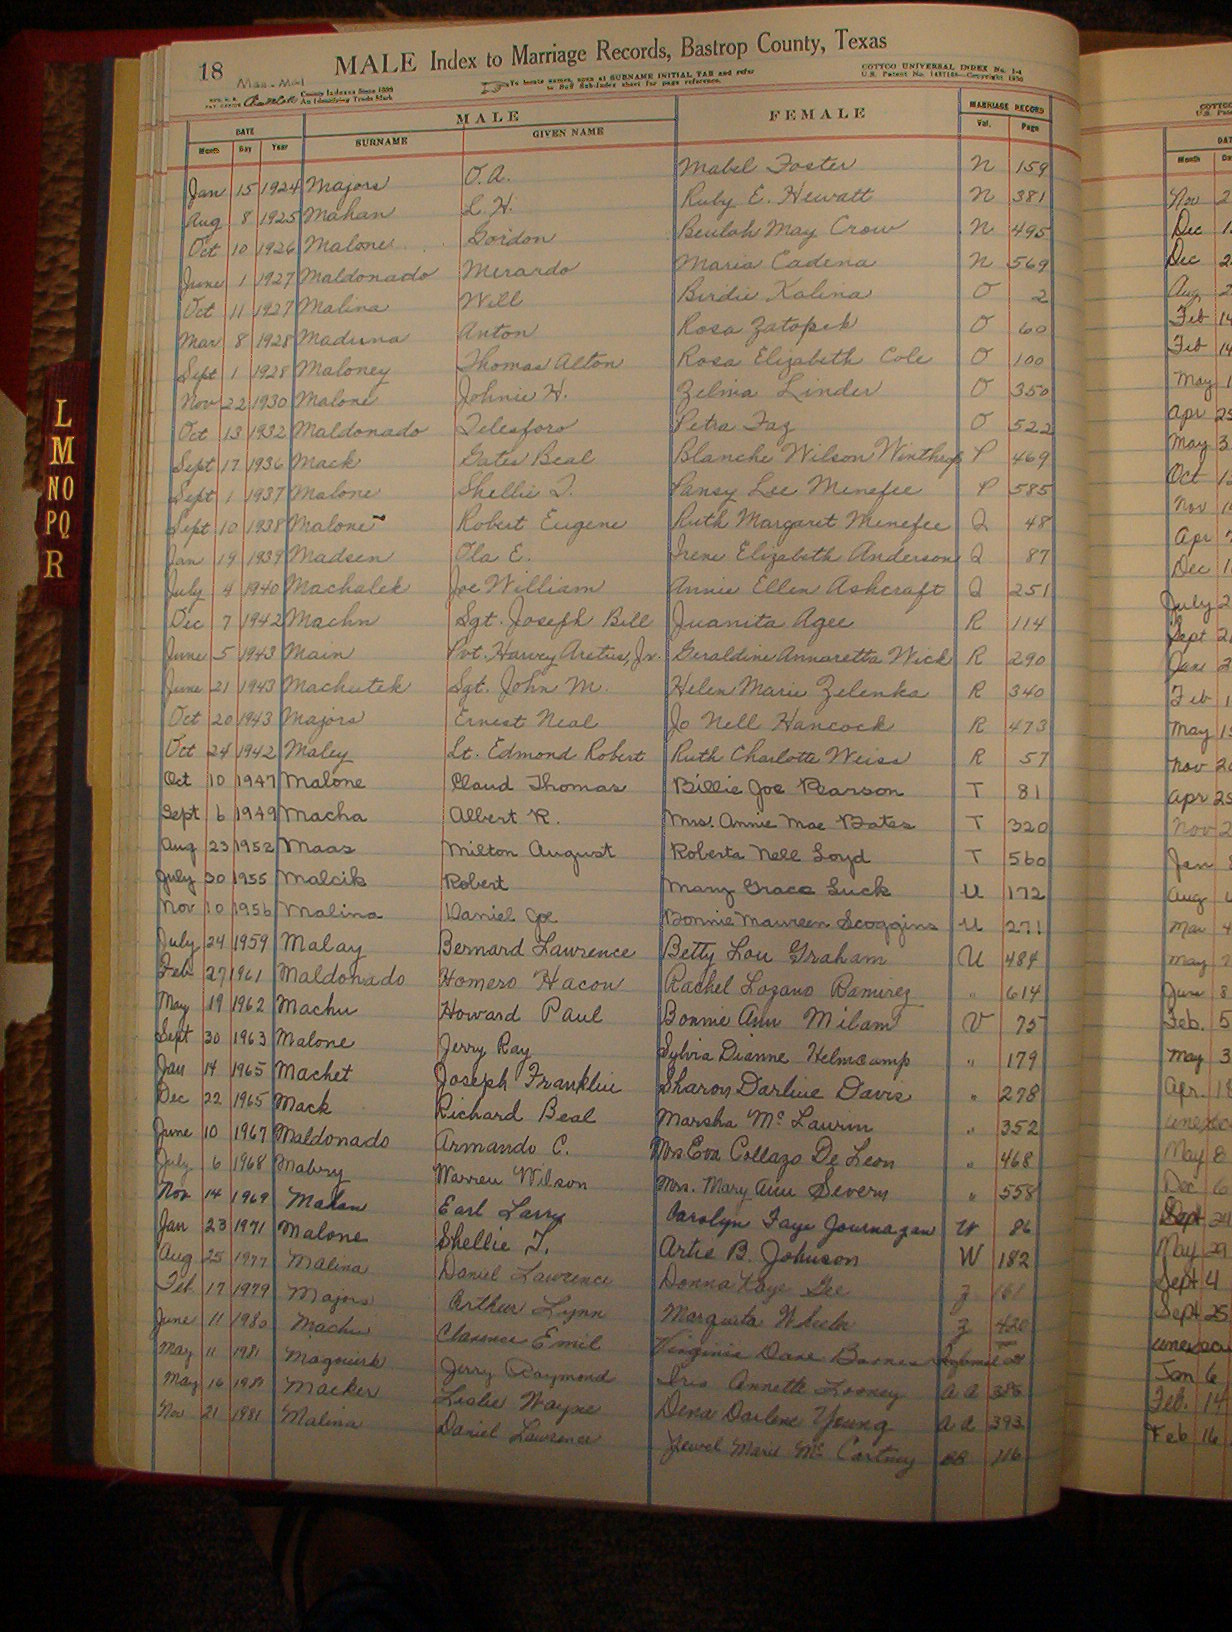 18
MALE Index to Marriage Records, Bastrop County, Texas
To locate names, open at SURNAME INITIAL TAB and refer
COTTCO UNIVERSAL INDEX No. 1-4
County Indexes Since 1888
An Identifying Trade Mark
DATE MALE FEMALE MARRIAGE RECORD
Month Day Year SURNAME GIVEN NAME Vol. Page
Jan 15 1924 Majors O. A. Mabel Foster N 159
Aug 8 1925 Mahan L. H. Ruby E. Hewatt N 381
Oct 10 1926 Malone Gordon Beulah May Crow N 495
June 1 1927 Maldonado Merardo Maria Cadena N 569
Oct 11 1927 Malina Will Birdie Kalina O 2
Mar 8 1928 Maduna Anton Rosa Zatopek O 60
Sept 1 1928 Maloney Thomas Alton Rosa Elizabeth Cole O 100
Nov 22 1930 Malone Johnie H. Zelma Linder O 350
Oct 13 1932 Maldonado Telesforo Petra Faz O 522
Sept 17 1936 Mack Gates Beal Blanche Wilson Winthrop P 469
Sept 1 1937 Malone Shellie T. Pansy Lee Menefee P 585
Sept 10 1938 Malone Robert Eugene Ruth Margaret Menefee Q 48
Jan 19 1939 Madsen Ola E. Irene Elizabeth Anderson Q 87
July 4 1940 Machalek Joe William Annie Ellen Ashcraft Q 251
Dec 7 1942 Machn Sgt. Joseph Bill Juanita Agee R 114
June 5 1943 Main Pvt. Harvey Aretus, Jr. Geraldine Annaretta Wick R 290
June 21 1943 Machutek Sgt. John M. Helen Marie Zelenka R 340
Oct 20 1943 Majors Ernest Neal Jo Nell Hancock R 473
Oct 24 1942 Maley Lt. Edmond Robert Ruth Charlotte Weiss R 57
Oct 10 1947 Malone Claud Thomas Billie Joe Pearson T 81
Sept 6 1949 Macha Albert R. Mrs. Annie Mae Bates T 320
Aug 23 1952 Maas Milton August Roberta Nell Loyd T 560
July 30 1955 Malcik Robert Mary Grace Luck U 172
Nov 10 1956 Malina Daniel Joe Bonnie Maureen Scoggins U 271
July 24 1959 Malay Bernard Lawrence Betty Lou Graham U 484
Feb 27 1961 Maldonado Homero Hacon Rachel Lozano Ramirez " 614
May 19 1962 Machu Howard Paul Bonnie Ann Milam V 75
Sept 30 1963 Malone Jerry Ray Sylvia Dianne Helmcamp " 179
Jan 14 1965 Machet Joseph Franklin Sharon Darline Davis " 278
Dec 22 1965 Mack Richard Beal Marsha McLaurin " 352
June 10 1967 Maldonado Armando C. Mrs Eva Collazo De Leon " 468
July 6 1968 Mabry Warren Wilson Mrs. Mary Ann Severn " 558
Nov 14 1969 Mahan Earl Larry Carolyn Faye Journagan W 86
Jan 23 1971 Malone Shellie T. Artie B. Johnson W 182
Aug 25 1977 Malina Daniel Lawrence Donna Kaye Gee Z 161
Feb 17 1979 Majors Arthur Lynn Margueta Wheeler Z 420
June 11 1980 Machu Clarence Emil Virginia Dare Barnes
May 11 1981 Maguirk Jerry Raymond Iris Annette Looney AA 385
May 16 1981 Macker Leslie Wayne Dena Darlene Young AA 393
Nov 21 1981 Malina Daniel Lawrence Jewel Marie McCartney BB 116
L
M
NO
PQ
R
Month
Nov 2
Dec
Dec 2
Aug 2
Feb 14
Feb 14
May 1
Apr 25
May 3
Oct 12
Nov
Apr 7
Dec 1
July 2
Sept 2
June 2
Feb 1
May 15
Nov 20
Apr 25
Nov 2
Jan
Aug 6
Mar 4
May 2
June 8
Feb. 5
May 3
Apr. 18
May 8
Dec 6
Sept 24
May 29
Sept 4
Sept 25
Jan 6
Feb. 14
Feb 16